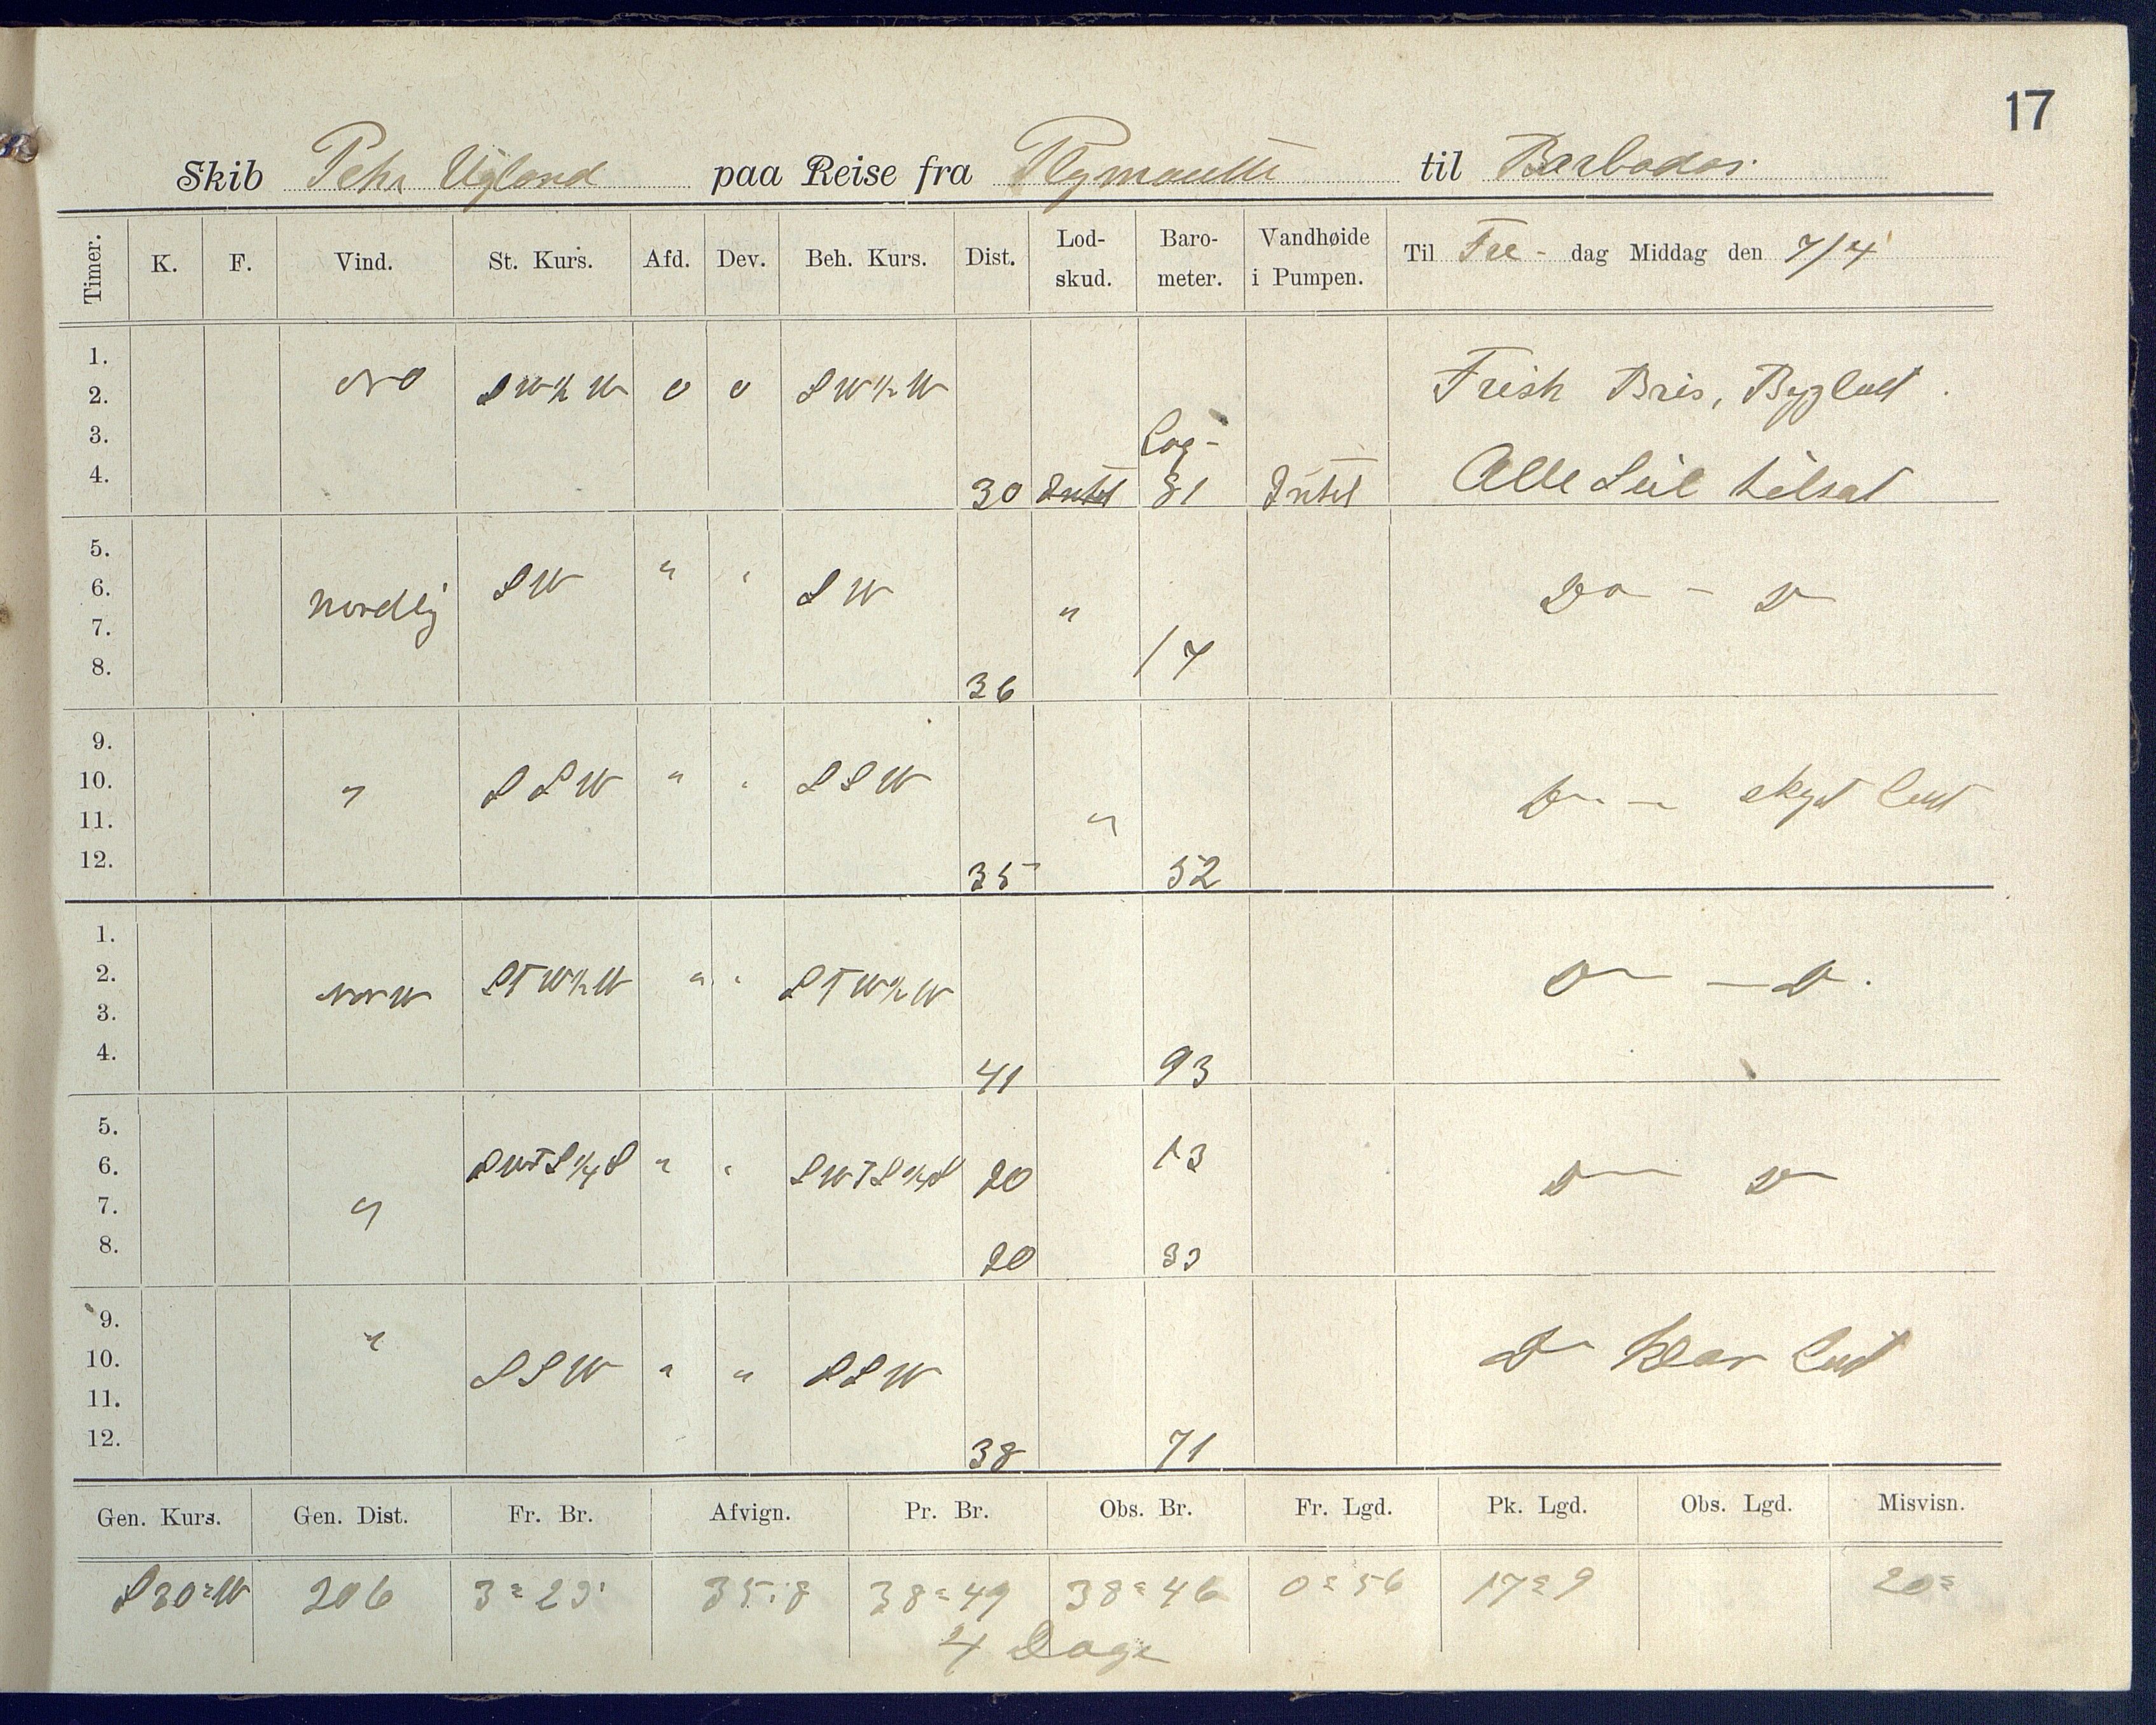 17
Skib Peter Ugland paa Reise fra Plymouth til Barbados.
Timer. K. F. Vind. St. Kurs. Afd. Dev. Beh. Kurs. Dist. Lod-skud. Baro-meter. Vandhøide i Pumpen. Til Fre- dag Middag den 7/4
1.
2. NO SW½W 0 0 SW½W Frisk Bris, Bygluft.
3. Log-
4. 30 Intet 81 Intet Alle Seil tilsat
5.
6. Nordlig SW " " SW " Do - D
7. 17
8. 36
9.
10. " SSW " " SSW Do - skyet luft
11. "
12. 35 52
1.
2. NNW STW½W " " STW½W Do - D.
3.
4. 41 93
5.
6. SWTS¼S " " SWTS¼S 20 13 D D
7. "
8. 20 33
9. "
10. SSW " " SSW D klar luft
11.
12. 38 71
Gen. Kurs. Gen. Dist. Fr. Br. Afvign. Pr. Br. Obs. Br. Fr. Lgd. Pk. Lgd. Obs. Lgd. Misvisn.
S 30° W 206 3° 23' 35.8 38° 49 38° 46 0° 56 17° 9 20°
4 Dage